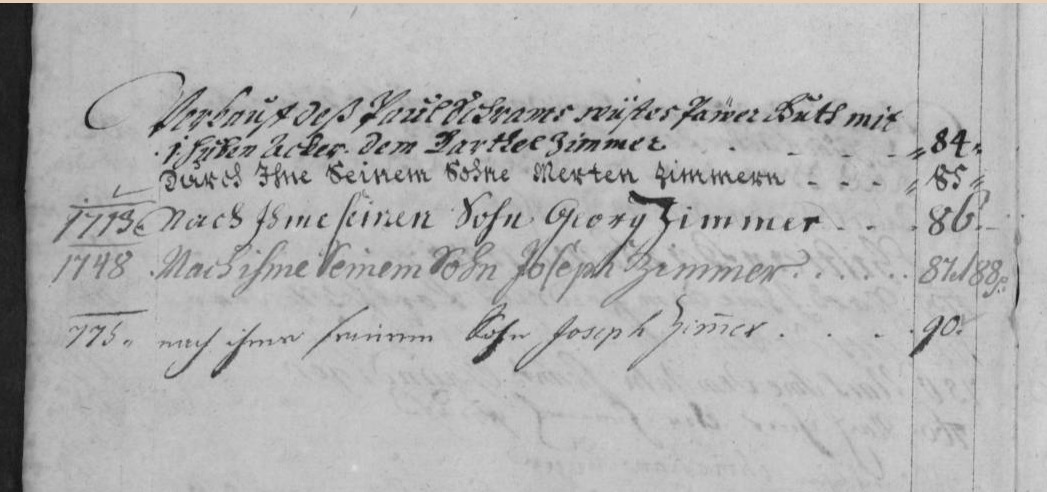 Verkauft deß Paul Schrams wüstes Pawer Guth mit
1 Huben Acker. dem Barthel Zimmer . . . . „ 84.
Durch Ihne Seinem Sohne Merten Zimmern . . . „ 85 „
1713. Nach Ihme seinen Sohn Georg Zimmer . . . 86.
1748 Nach ihme Seinem Sohn Joseph Zimmer . . . 87. 88.
775. nach ihme seinem Sohn Joseph Zim̅er . . . . 90.